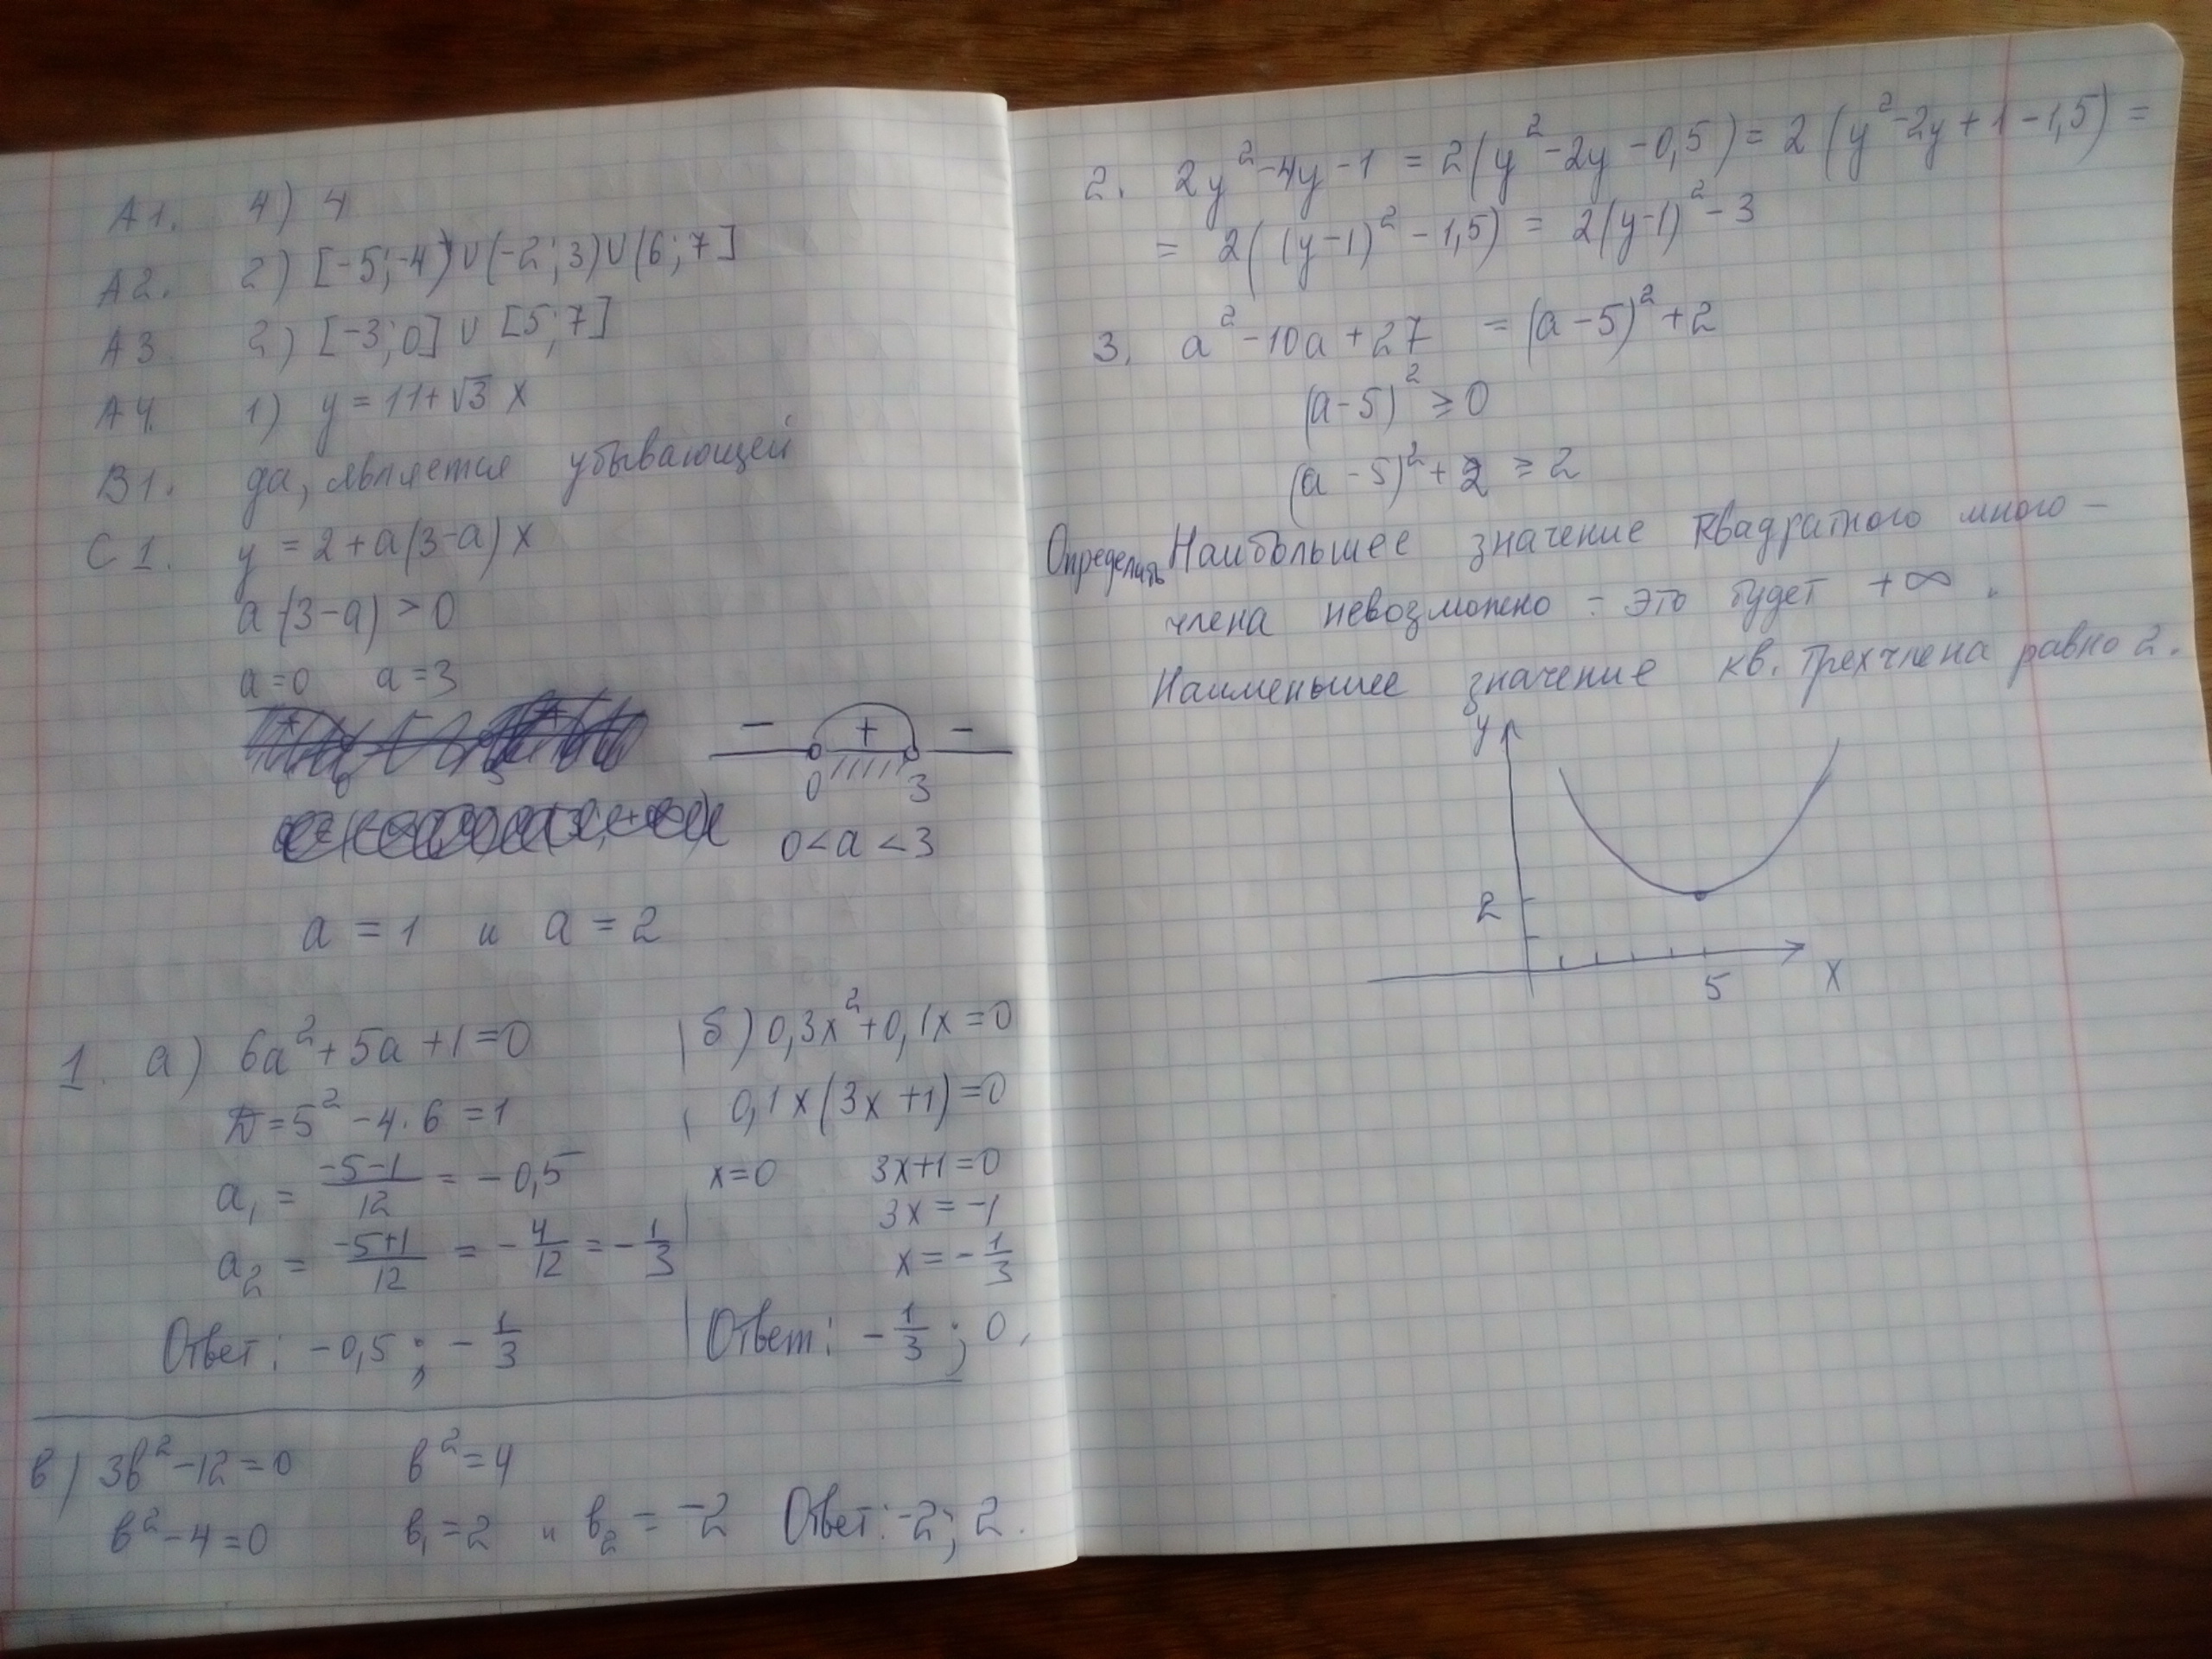 А1. 4) 4
А2. 2) [-5;-4)∪(-2;3)∪(6;7]
А3 2) [-3;0]∪[5;7]
А4. 1) y = 11+√3 x
В1. да, является убывающей
С1. y = 2+a(3-a)x
a(3-a)>0
a=0 a=3
- + -
0 3
0<a<3
a = 1 и a = 2
1. а) 6a²+5a+1=0
D=5²-4·6=1
a₁ = (-5-1)/12 = -0,5
a₂ = (-5+1)/12 = -4/12 = -1/3
Ответ: -0,5 ; -1/3
б) 0,3x²+0,1x=0
0,1x(3x+1)=0
x=0 3x+1=0
3x=-1
x=-1/3
Ответ: -1/3 ; 0.
в) 3в²-12=0 в²=4
в²-4=0 в₁=2 и в₂ = -2 Ответ: -2; 2.
2. 2y²-4y-1 = 2(y²-2y-0,5) = 2(y²-2y+1-1,5) =
= 2((y-1)²-1,5) = 2(y-1)²-3
3. a²-10a+27 = (a-5)²+2
(a-5)² ≥ 0
(a-5)²+2 ≥ 2
Определить Наибольшее значение квадратного много-
члена невозможно - это будет +∞.
Наименьшее значение кв. трехчлена равно 2.
y
2
5 x